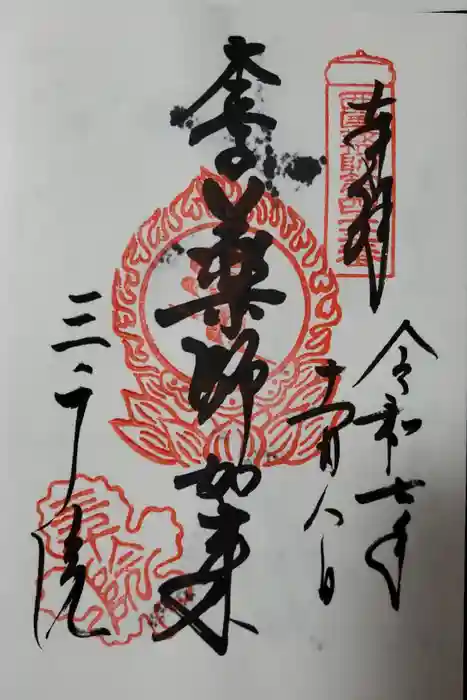 奉拝
令和七年
十一月八日
本尊
薬師如来
三千院